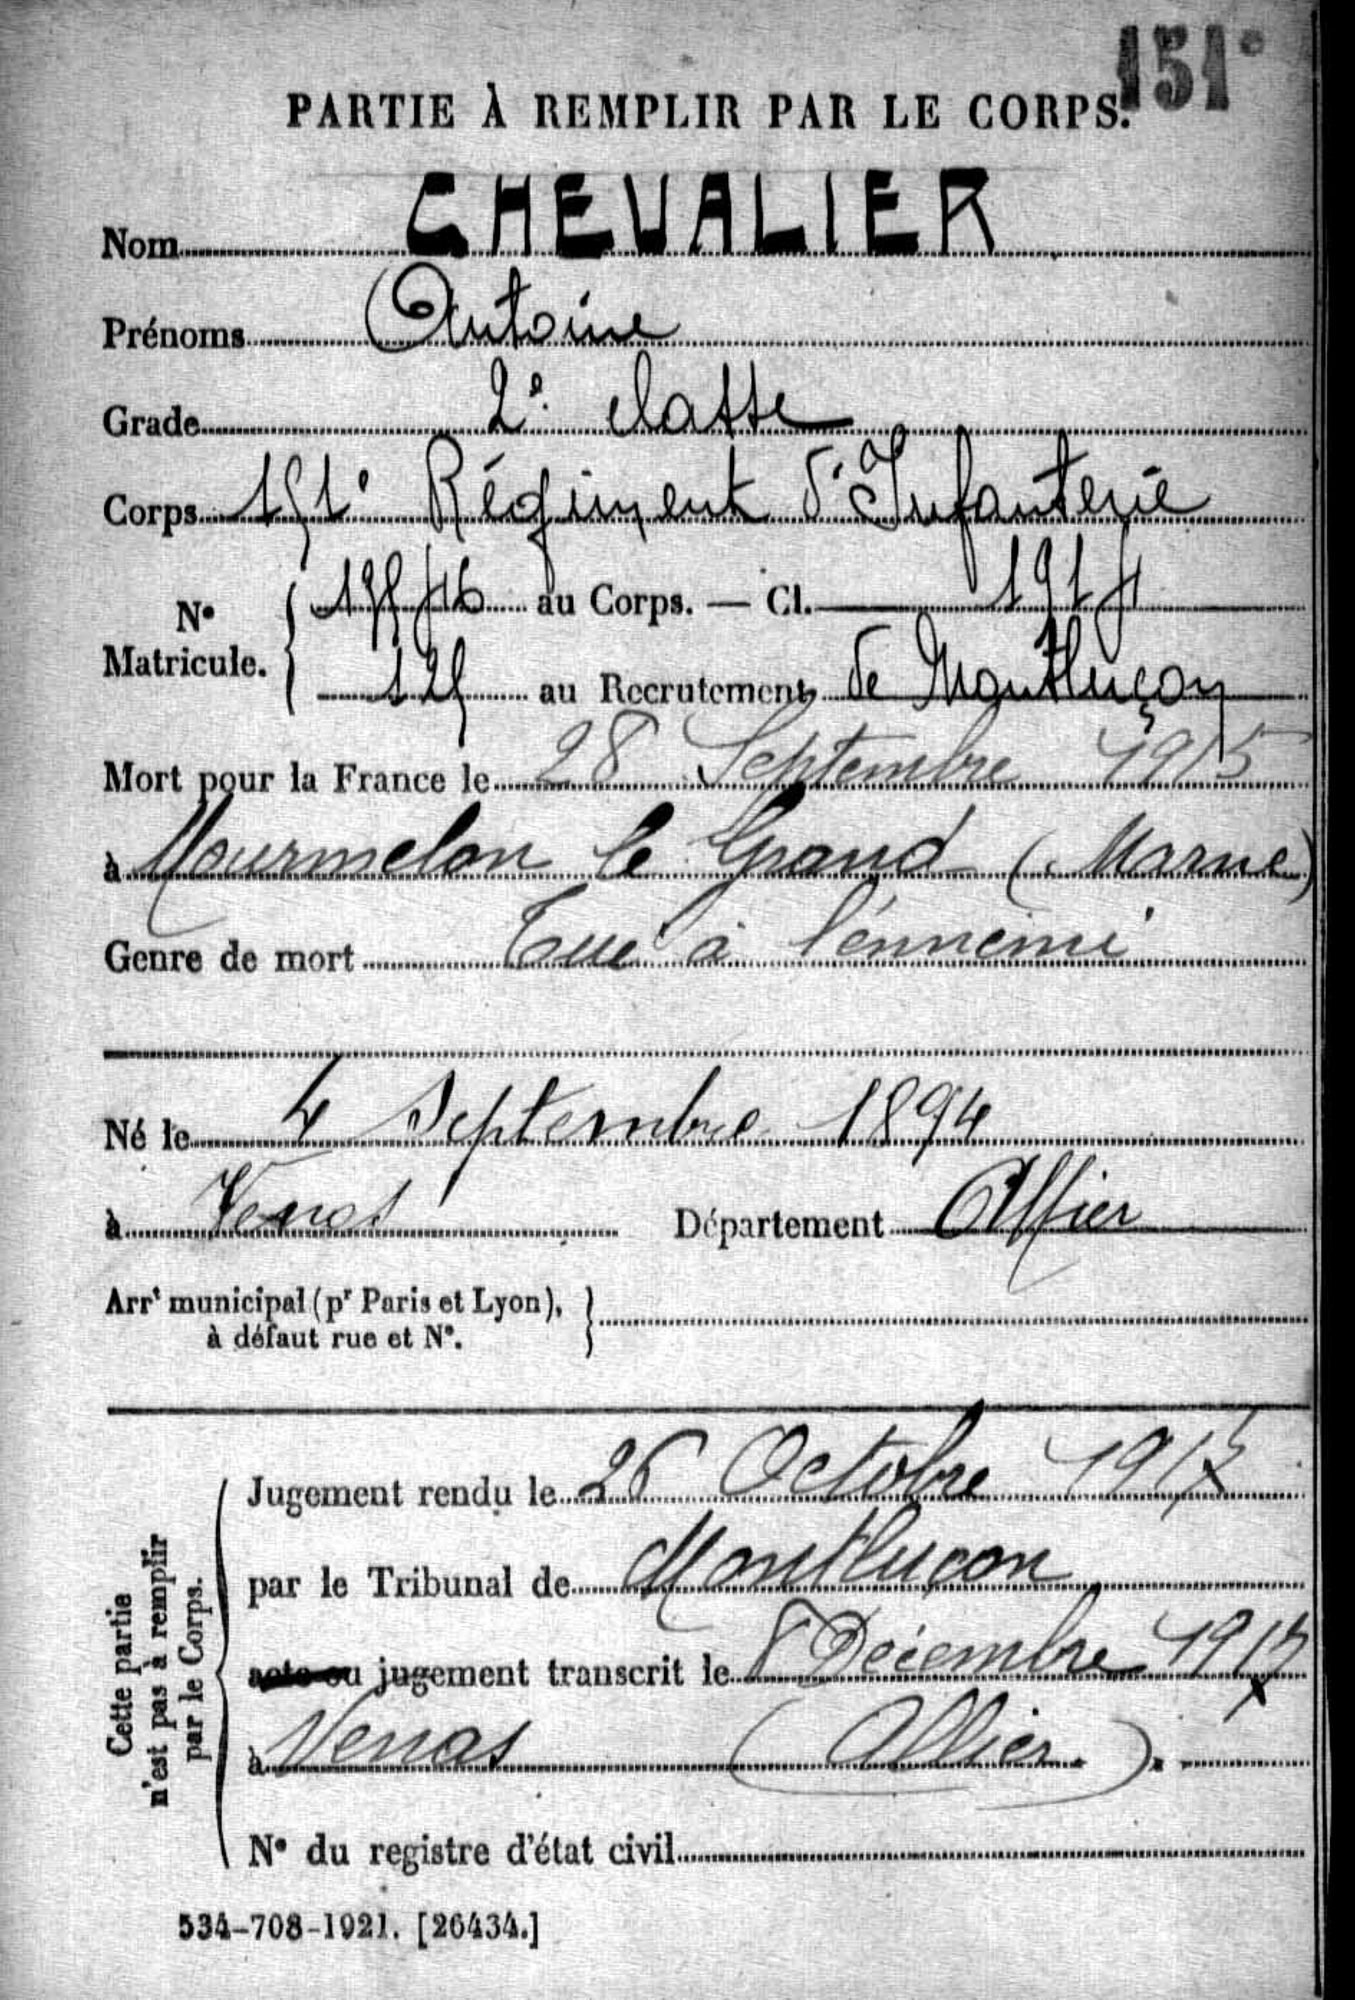 151e
PARTIE À REMPLIR PAR LE CORPS.
Nom CHEVALIER
Prénoms Antoine
Grade 2e classe
Corps 151e Régiment d'Infanterie
N° Matricule. { au Corps. — Cl. 1914
125 au Recrutement de Montluçon
Mort pour la France le 28 Septembre 1915
à Mourmelon le Grand (Marne)
Genre de mort Tué à l'ennemi
Né le 4 Septembre 1894
à Venas Département Allier
Arrt municipal (pr Paris et Lyon),
à défaut rue et N°.
Cette partie
n'est pas à remplir
par le Corps.
Jugement rendu le 26 Octobre
par le Tribunal de Montluçon
acte ou jugement transcrit le 8 Décembre
à Venas (Allier).
N° du registre d'état civil
534-708-1921. [26434.]